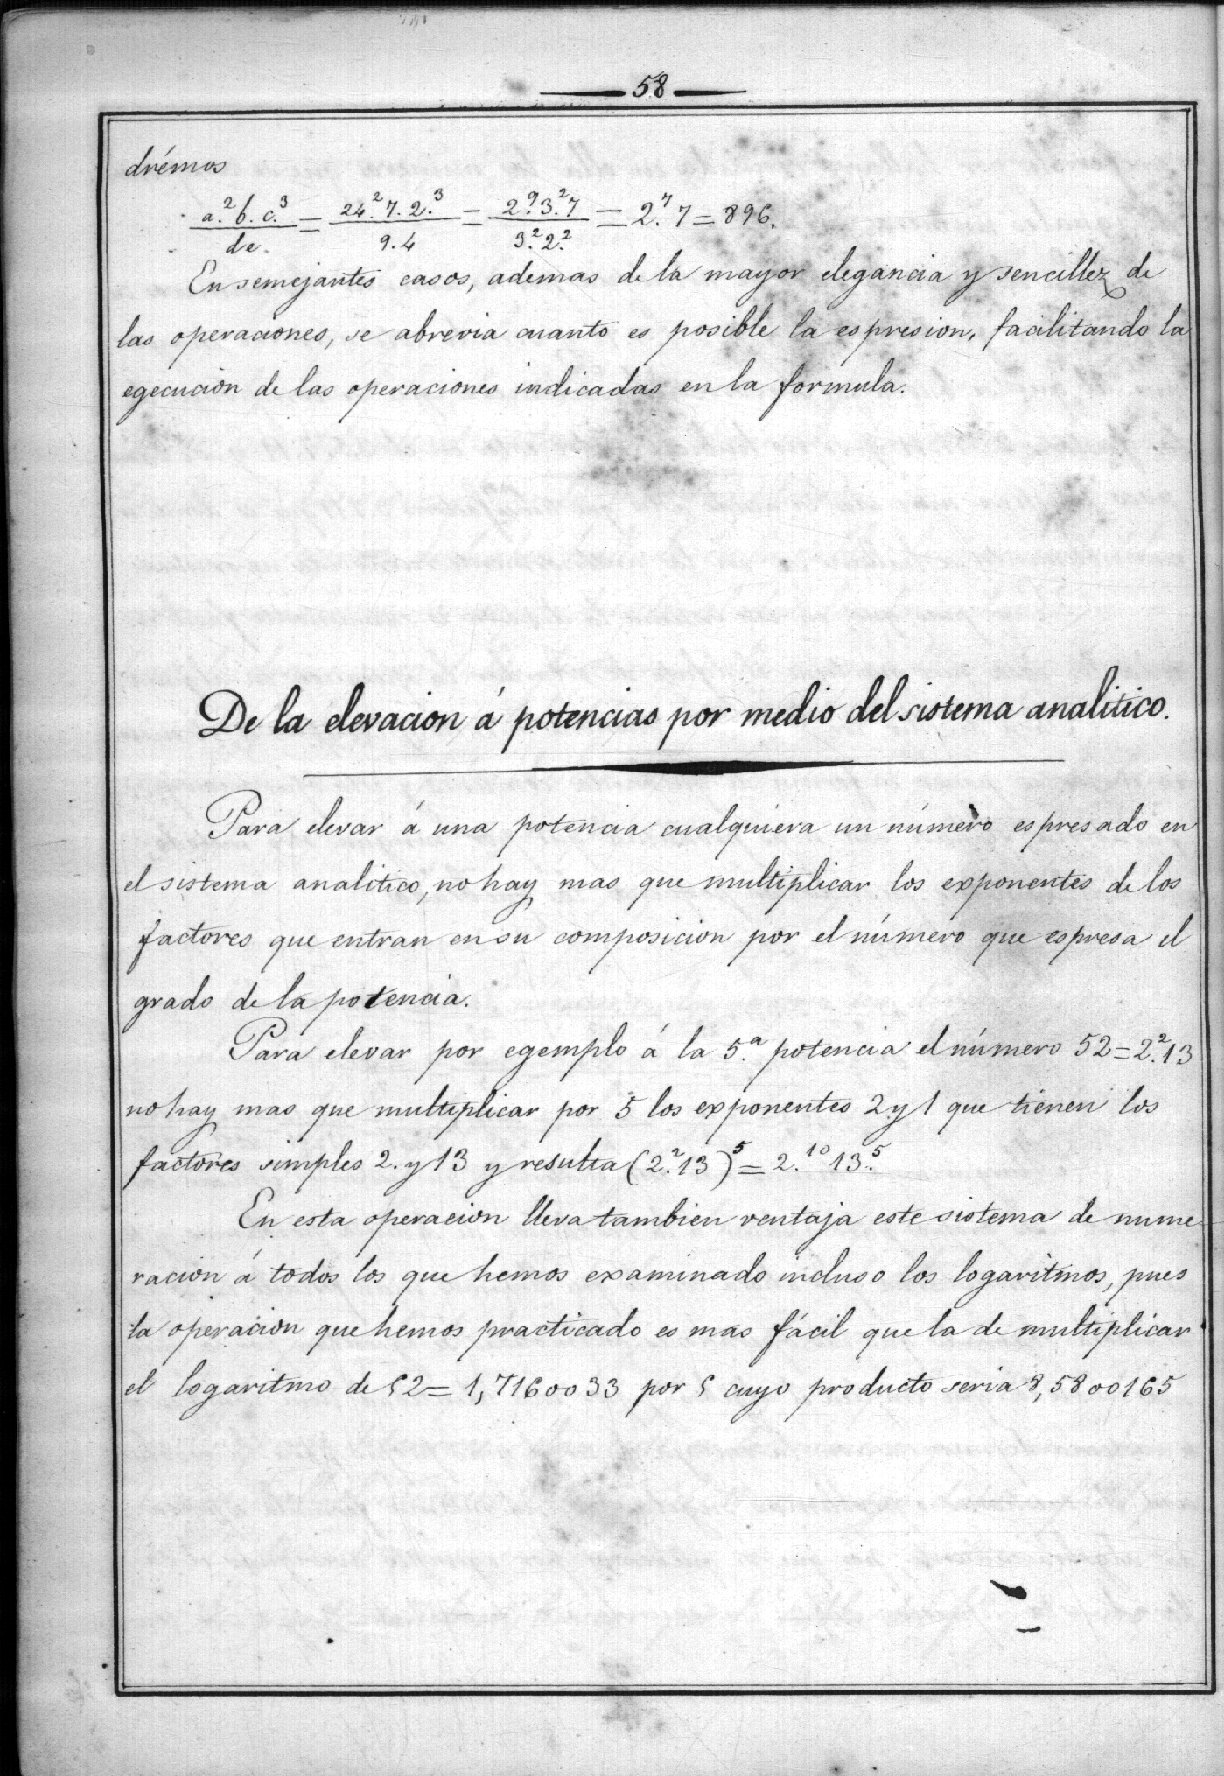 58
drémos
a.² b. c.³ / de. = 24.² 7. 2.³ / 9. 4 = 2.⁹ 3.² 7 / 3.² 2.² = 2.⁷ 7 = 896.
En semejantes casos, ademas de la mayor elegancia y sencillez de
las operaciones, se abrevia cuanto es posible la espresion, facilitando la
egecucion de las operaciones indicadas en la formula.
De la elevacion á potencias por medio del sistema analitico.
Para elevar á una potencia cualquiera un número espresado en
el sistema analitico, no hay mas que multiplicar los exponentes de los
factores que entran en su composicion por el número que espresa el
grado de la potencia.
Para elevar por egemplo á la 5.ª potencia el número 52=2.² 13
no hay mas que multiplicar por 5 los exponentes 2 y 1 que tienen los
factores simples 2. y 13 y resulta (2.² 13)⁵ = 2.¹⁰ 13.⁵
En esta operacion lleva tambien ventaja este sistema de nume-
racion á todos los que hemos examinado incluso los logaritmos, pues
la operacion que hemos practicado es mas fácil que la de multiplicar
el logaritmo de 52 = 1,7160033 por 5 cuyo producto seria 8,5800165